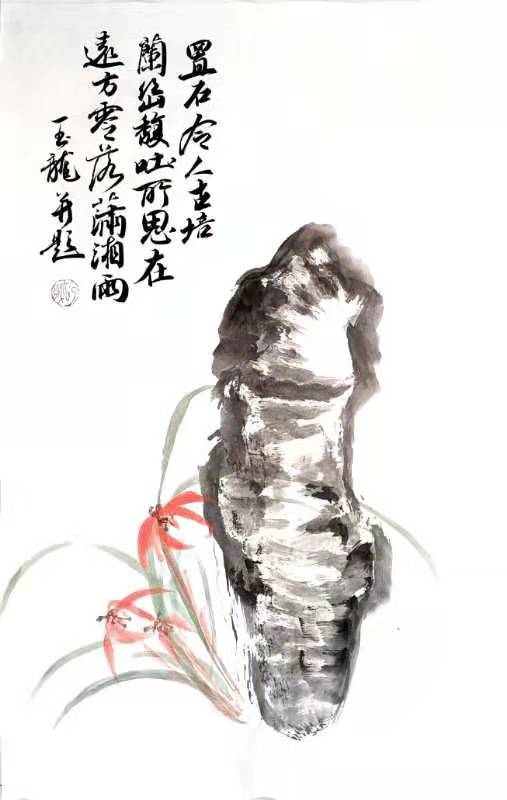 置石令人古培
蘭茲馥吐所思在
遠方零落蕭湘雨
玉龍並題